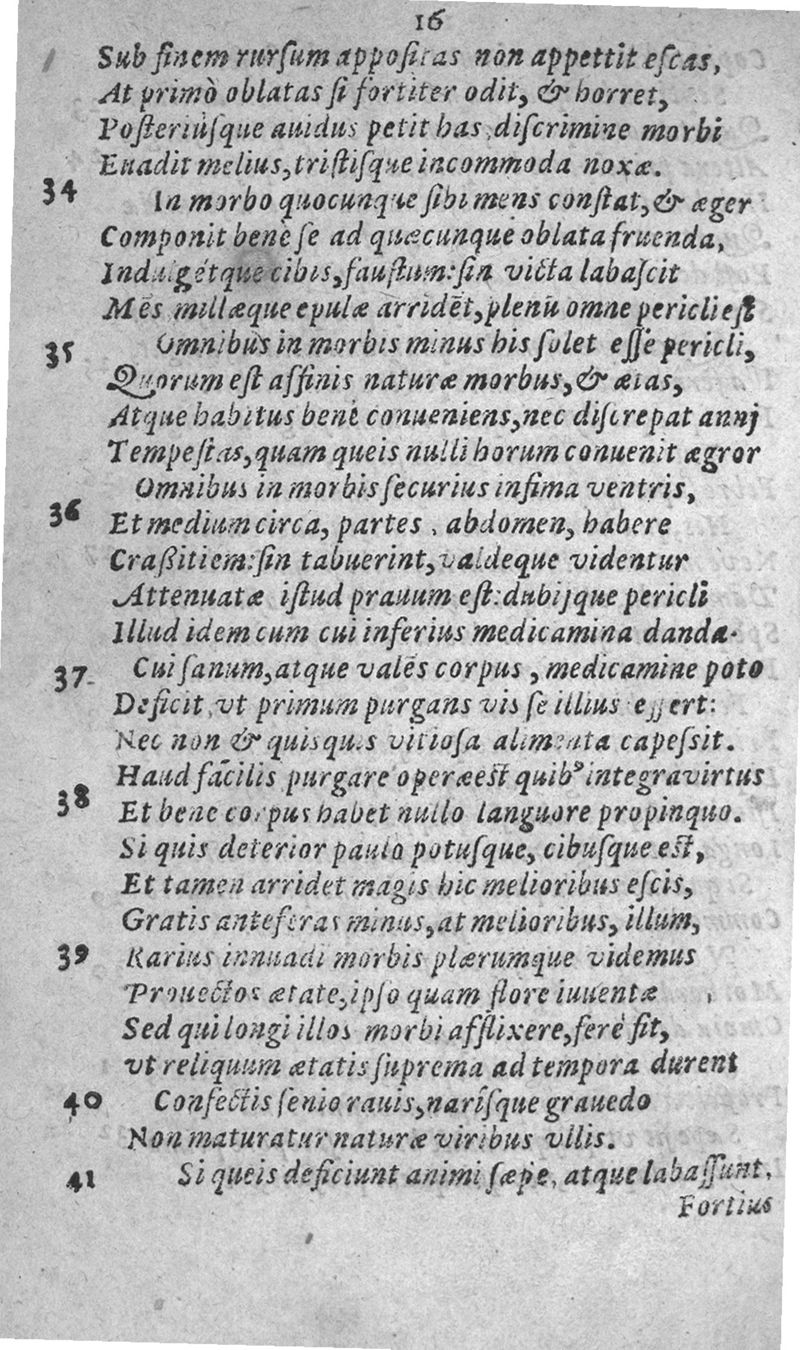 16
Sub finem rursum appositas non appettit escas,
At primò oblatas si fortiter odit, & horret,
Posteriùsque auidus petit has, discrimine morbi
Euadit melius, tristisque incommoda noxæ.
34 In morbo quocunque sibi mens constat, & æger
Componit benè se ad quæcunque oblata fruenda,
Indulgétque cibis, faustum: sin victa labascit
Mẽs millæque epulæ arridẽt, plenũ omne pericli est
35 Omnibus in morbis minus his solet esse pericli,
Quorum est affinis naturæ morbus, & ætas,
Atque habitus benè conueniens, nec discrepat annj
Tempestas, quam queis nulli horum conuenit ægror
Omnibus in morbis securius infima ventris,
36 Et medium circa, partes, abdomen, habere
Craßitiem: sin tabuerint, valdeque videntur
Attenuatæ istud prauum est: dubijque pericli
Illud idem cum cui inferius medicamina danda.
37 Cui sanum, atque valẽs corpus, medicamine poto
Deficit, vt primum purgans vis se illius effert:
Nec non & quisquis vitiosa alimenta capessit.
Haud facilis purgare operæ est quibꝰ integra virtus
38 Et bene corpus habet nullo languore propinquo.
Si quis deterior paulo potusque, cibusque est,
Et tamen arridet magis hic melioribus escis,
Gratis anteferas minus, at melioribus, illum,
39 Rarius innuadi morbis plærumque videmus
Prouectos ætate, ipso quam flore iuuentæ
Sed qui longi illos morbi afflixere, ferè fit,
vt reliquum ætatis suprema ad tempora durent
40 Confectis senio rauis, narísque grauedo
Non maturatur naturæ viribus vllis.
41 Si queis deficiunt animi sæpe, atque labassunt,
Fortius